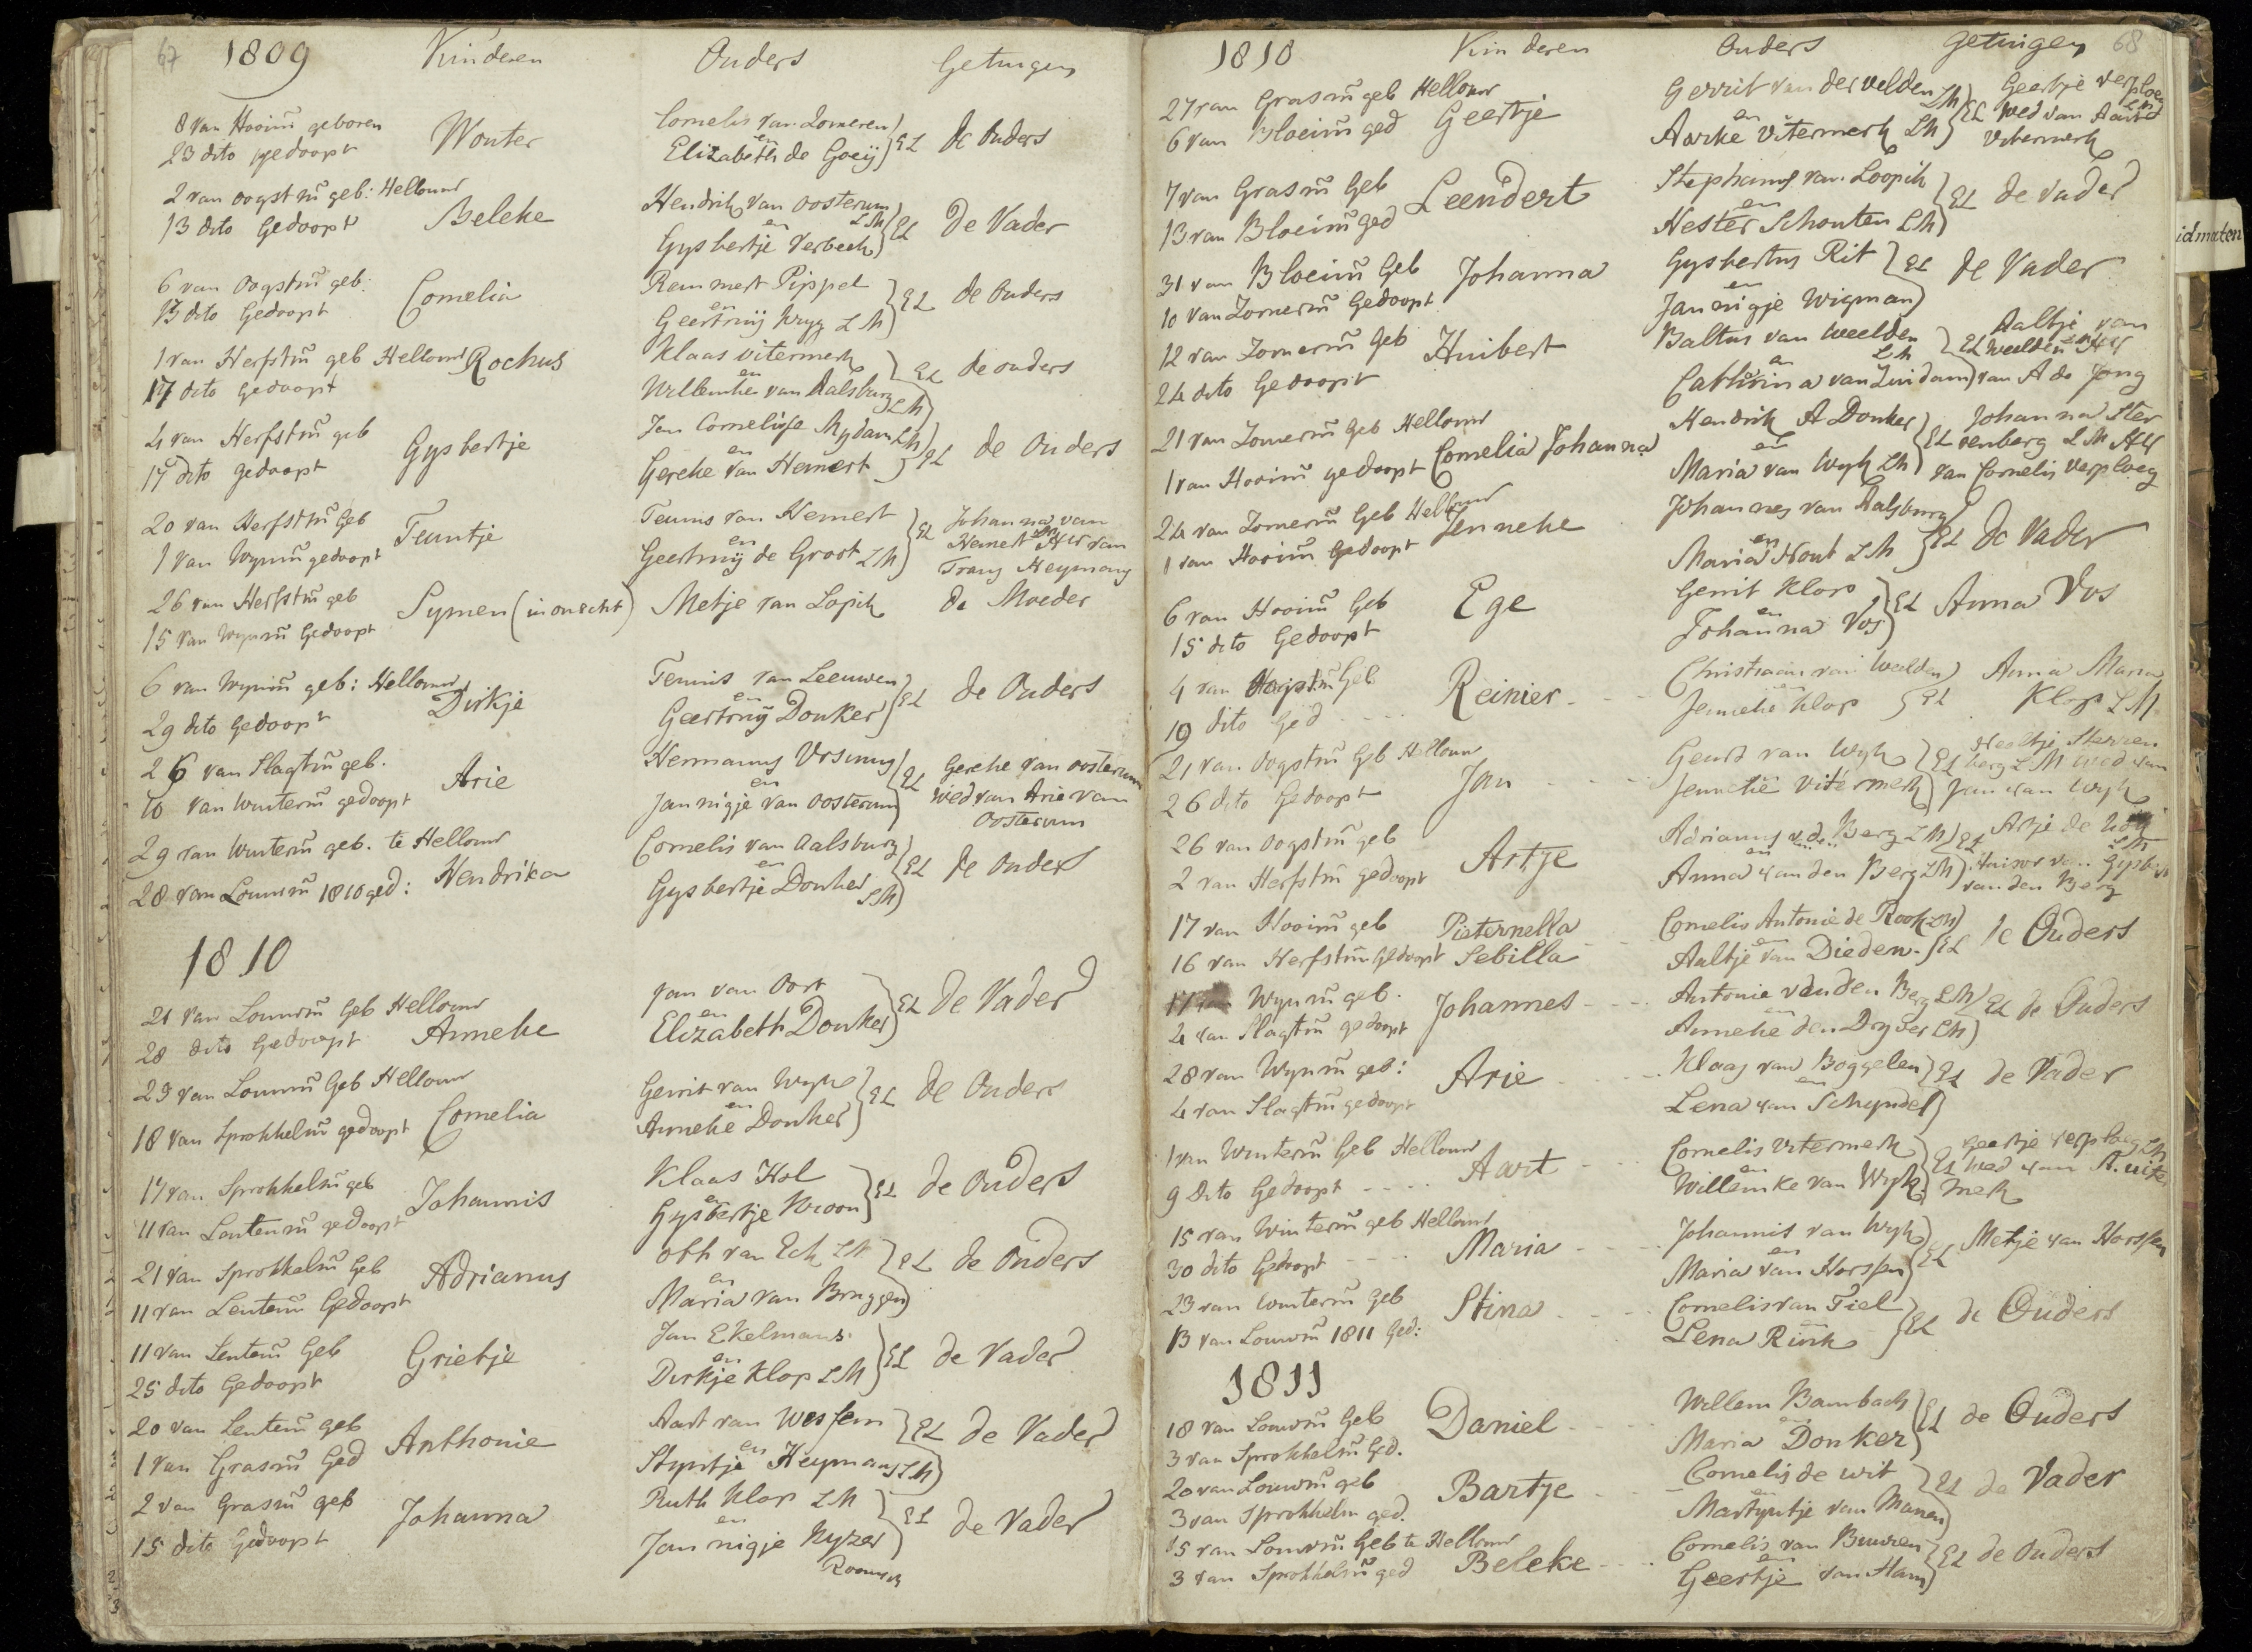 67 1809 Kinderen Ouders Getuigen
8 van Hooim geboren
23 dito gedoopt
Wouter
Cornelis van Zomeren
en
Elizabeth de Goeij
EL de Ouders
2 van oogstm geb: Hellouw
13 dito Gedoopt
Beleke
Hendrik van Oosterum
LM
en
Gysbertje Verbeek
EL de Vader
6 van Oogstm geb:
13 dito Gedoopt
Cornelia
Remmert Pippel
en
Geertruij Kryg LM
EL de Ouders
1 van Herfstm geb Hellouw
17 dito Gedoopt
Rochus
Klaas Uitermerk
en
Willemke van Aalsburg LM
EL de ouders
4 van Herfstm geb
17 dito gedoopt
Gysbertje
Jan Cornelisse Mydam LM
en
Gereke van Hemert
EL de Ouders
20 van Herfstm Geb
1 Van Wynm gedoopt
Teuntje
Teunis van Hemert
en
Geertruij de Groot LM
EL Johanna van
Hemert van
Frans Heymans
26 van Herfstm geb
15 van Wynm Gedoopt
Symen (in onecht)
Metje van Lopik
de Moeder
6 van Wynm geb: Hellouw
29 dito Gedoopt
Dirkje
Teunis van Leeuwen
en
Geertruij Donker
EL de Ouders
26 van Slagtm geb.
10 van Winterm gedoopt
Arie
Hermanus Ursinus
en
Jannigje van Oosterum
EL Gereke van oosterum
Wed van Arie van
Oosterum
29 van Winterm geb. te Hellouw
28 van Louwm 1810 ged:
Hendrika
Cornelis van Aalsburg
en
Gysbertje Donker
LM
EL de Ouders
1810
21 van Louwm Geb Hellouw
28 dito Gedoopt
Anneke
Jan van Oort
en
Elizabeth Donker
EL de Vader
29 van Louwm Geb Hellouw
18 van Sprokkelm gedoopt
Cornelia
Gerrit van Wyk
en
Anneke Donker
EL de Ouders
17 van Sprokkelm geb
11 van Lentem gedoopt
Johannis
Klaas Hol
en
Gysbertje Kroon
EL de Ouders
21 van Sprokkelm Geb
11 van Lentem Gedoopt
Adrianus
Oth van Eck LM
en
Maria van Bruggen
EL de Ouders
11 van Lentem Geb
25 dito Gedoopt
Grietje
Jan Ekelmans
en
Dirkje Klop LM
EL de Vader
20 van Lentem geb
1 van Grasm Ged
Anthonie
Aart van Wessem
en
Styntje Heymans LM
EL de Vader
2 van Grasm geb
15 dito Gedoopt
Johanna
Ruth Klop LM
en
Jannigje Kyzer
Roomsch
EL de Vader
1810 Kinderen Ouders Getuigen 68
27 van Grasm geb Hellouw
6 van Bloeim ged
Geertje
Gerrit van der Velden LM
en
Aarke Uitermerk LM
EL Geertje Verploeg
LM
Wed van Aart
Uitermerk
7 van Grasm Geb
13 van Bloeim ged
Leendert
Stephanus van Loopik
en
Hester Schouten LM
EL de Vader
31 van Bloeim Geb
10 van Zomerm Gedoopt
Johanna
Gysbertus Rit
en
Jannigje Wigman
EL de Vader
12 van Zomerm Geb
24 dito Gedoopt
Huibert
Baltus van Weelden
en LM
Catharina van Zuidam
EL Aaltje van
Weelden
van A de Jong
21 van Zomerm Geb Hellouw
1 van Hooim gedoopt
Cornelia Johanna
Hendrik A Donker
en
Maria van Wyk LM
EL Johanna Ster
renberg LM
van Cornelis Verploeg
24 van Zomerm Geb Hellouw
1 van Hooim Gedoopt
Jenneke
Johannes van Aalsburg
en
Maria Hout LM
EL de Vader
6 van Hooim Geb
15 dito Gedoopt
Ege
Gerrit Klop
en
Johanna Vos
EL Anna Vos
4 van Oogstm Geb
19 dito Ged
Reinier
Christiaan van Weelden
en
Jenneke Klop
EL Anna Maria
Klop LM
21 van Oogstm Geb Hellouw
26 dito Gedoopt
Jan
Geurt van Wyk
en
Jenneke Uitermerk
EL Sterren
berg LM Wed van
Jan van Wyk
26 van Oogstm geb
2 van Herfstm gedoopt
Artje
Adrianus v.d. Berg LM
en
Anna van den Berg LM
EL Artje de
LM
Huisvr van Gysbert
van den Berg
17 van Hooim geb
16 van Herfstm Gedoopt
Pieternella
Sebilla
Cornelis Antonie de Rook LM
en
Aaltje van Dieden
EL de Ouders
17 van Wynm geb.
4 van Slagtm gedoopt
Johannes
Antonie vanden Berg LM
en
Anneke den Dryver LM
EL de Ouders
28 van Wynm geb:
4 van Slagtm gedoopt
Arie
Klaas van Boggelen
en
Lena van Schyndel
EL de Vader
1 van Winterm Geb Hellouw
9 Dito Gedoopt
Aart
Cornelis Uitermerk
en
Willemke van Wyk
EL Geertje Verploeg LM
Wed van A. uiter
merk
15 van Winterm geb Hellouw
30 dito Gedoopt
Maria
Johannis van Wyk
en
Maria van Horssen
EL Metje van Horssen
23 van Winterm geb
13 van Louwm 1811 Ged:
Stina
Cornelis van Tiel
en
Lena Rink
EL de Ouders
1811
18 van Louwm Geb
3 van Sprokkelm Ged.
Daniel
Willem Bambach
en
Maria Donker
EL de Ouders
20 van Louwm geb
3 van Sprokkelm ged.
Bartje
Cornelis de Wit
en
Martyntje van Manen
EL de Vader
15 van Louwm Geb te Hellouw
3 van Sprokkelm ged
Beleke
Cornelis van Buuren
en
Geertje van Ham
EL de Ouders
idmaten